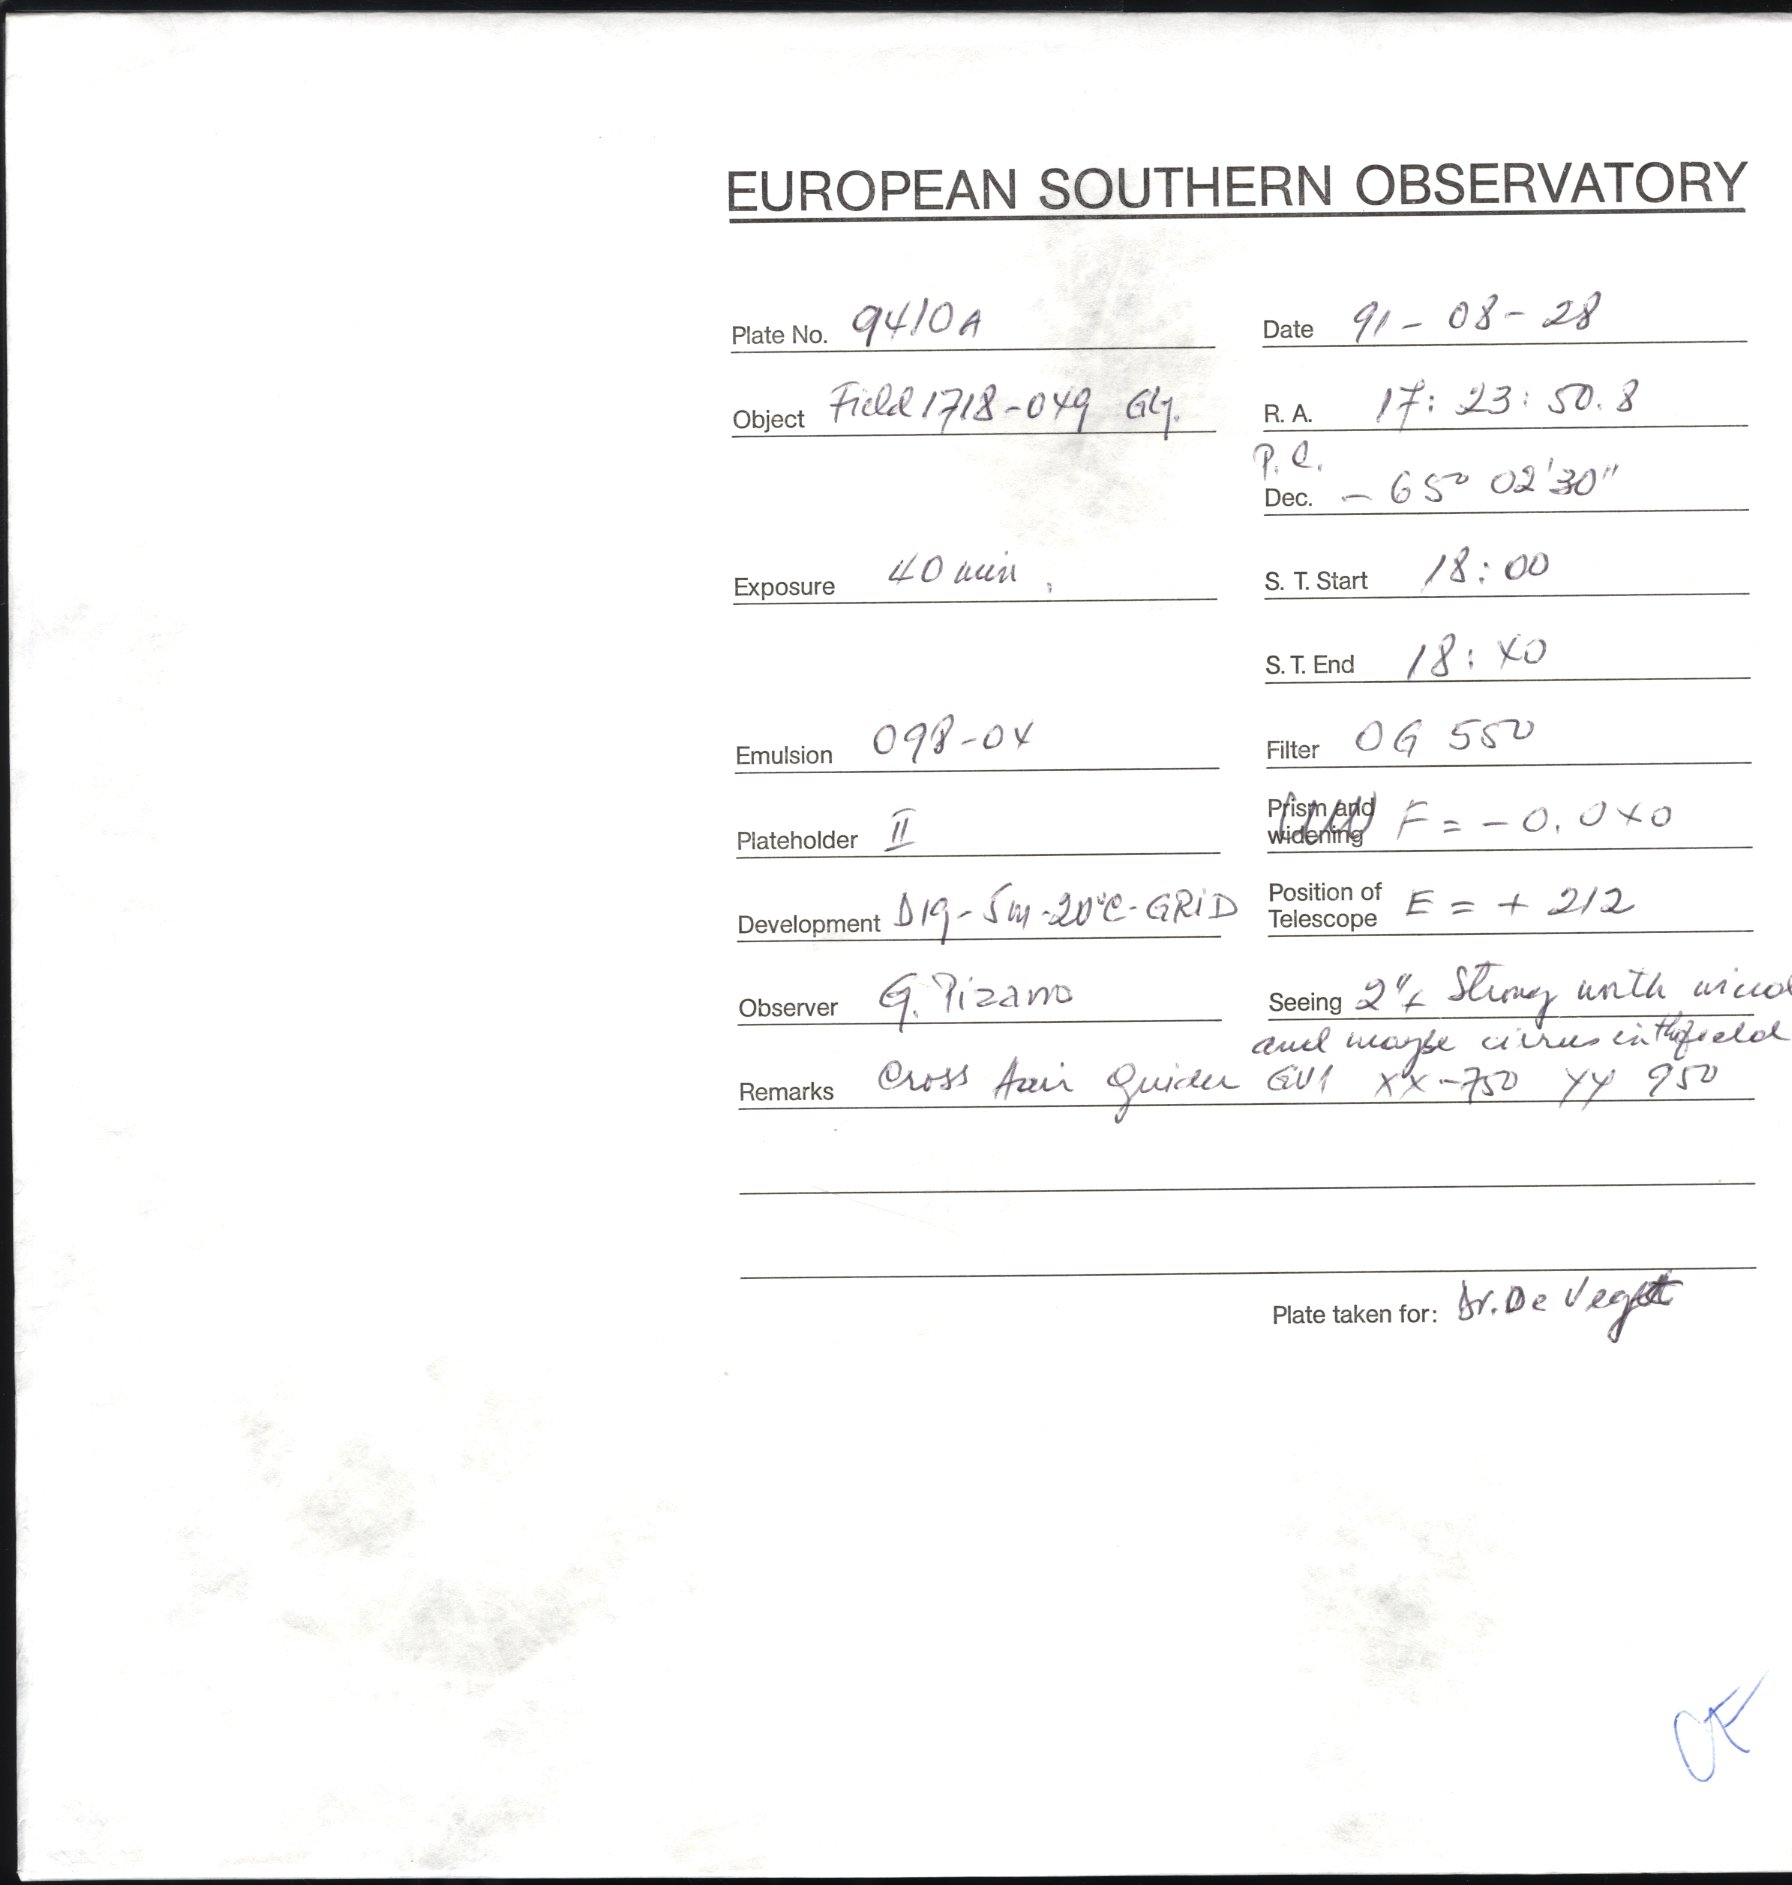 EUROPEAN SOUTHERN OBSERVATORY
Plate No. 9410A Date 91-08-28
Object Field 1718-049 Gly. R. A. 17: 23: 50. 8
P. C.
Dec. - 65° 02'30"
Exposure 40 min. S. T. Start 18:00
S. T. End 18:40
Emulsion 098-04 Filter OG 550
Plateholder II Prism and widening F = - 0. 040
Development D19-5m-20°C-GRID Position of Telescope E = + 212
Observer G. Pizarro Seeing 2"± Strong north wind
and maybe cirrus in the field
Remarks Cross hair guider GV1 XX-750 YY 950
Plate taken for: Dr. De Vegt